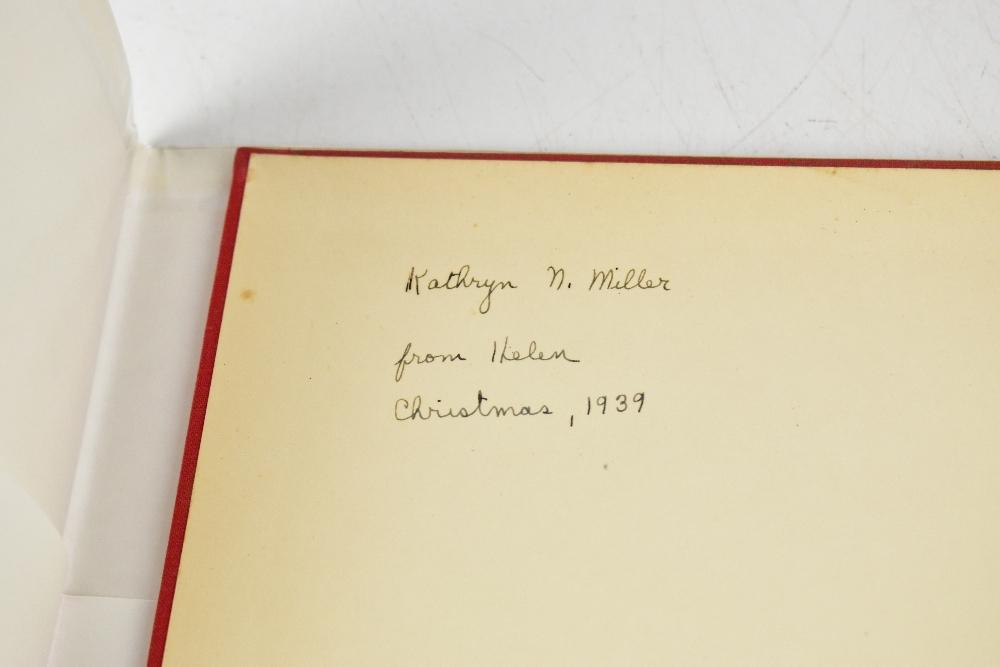 Kathryn N. Miller
from Helen
Christmas, 1939